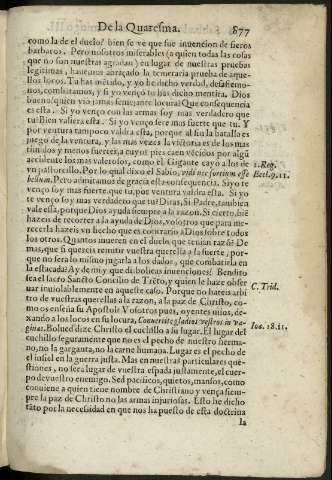 De la Quaresma. 877
como la de el duelo? bien se ve que fue inuencion de fieros
barbaros. Pero nosotros miserables (a quien todas las cosas
que no son nuestras agradan) en lugar de nuestras prueuas
legitimas, hauemos abraçado la temeraria prueba de aque-
llos locos. Tu has mẽtido, y yo he dicho verdad, desafiemo-
nos, combatamos, y si yo vẽço tu has dicho mentira. Dios
bueno! quien vio jamas semejante locura? Que consequencia
es esta. Si yo venço con las armas soy mas verdadero que
tu? Bien valiera esta. Si yo vẽço soy mas fuerte que tu. Y
por ventura tampoco valdra esta, porque al fin la batalla es
juego de la ventura, y las mas vezes la victoria es de los mas
timidos y menos fuertes, a cuyos pies caen vẽcidos por algũ
accidente los mas valerosos, como el Gigante cayo a los de
vn pastorcillo. Por lo qual dixo el Sabio, vidi nec fortium esse
bellum. Pero admitamos de gracia esta consequencia. Si yo te
venço soy mas fuerte que tu, por ventura valdra esta. Si yo
te venço soy mas verdadero que tu? Diras, Si Padre, tambien
vale essa, porque Dios ayuda siempre a la razon. Si cierto, biẽ
hazeis de recorrer a la ayuda de Dios, vosotros que para me-
recerla hazeis vn hecho que es contrario a Dios sobre todos
los otros. Quantos mueren en el duelo que tenian razõ? De
mas, que si quereis remitir vuestra querella a la suerte, por-
que no sera lo mismo jugarla a los dados, que combatirla en
la estacada? Ay de mi y que diabolicas inuenciones! Bendito
sea el sacro Sancto Concilio de Trẽto, y quien le haze obser
uar inuiolablemente en aqueste caso. Porque no haueis arbi-
tro de vuestras querellas a la razon, a la paz de Christo, co-
mo os enseña su Apostol? Vosotros pues, oyentes mios, de-
xando a los locos en su locura, Conuertite gladios vestros in va-
ginas. Bolued dize Christo el cuchillo a su lugar. El lugar del
cuchillo seguramente que no es el pecho de nuestro herma-
no, no la garganta, no la carne humana. Lugar es el pecho de
el infiel en la guerra justa. Mas en nuestras particulares que-
stiones, no sera lugar de vuestra espada justamente, el cuer-
po de vuestro enemigo. Sed pacificos, quietos, mansos, como
conuiene a quien tiene nombre de Christiano y vença siem-
pre la paz de Christo no las armas injuriosas. Esto he dicho
tãto por la necesidad en que nos ha puesto de esta doctrina
la
1. Reg.
Eccl. 9. 11.
C. Trid.
Ioa. 18. 11.